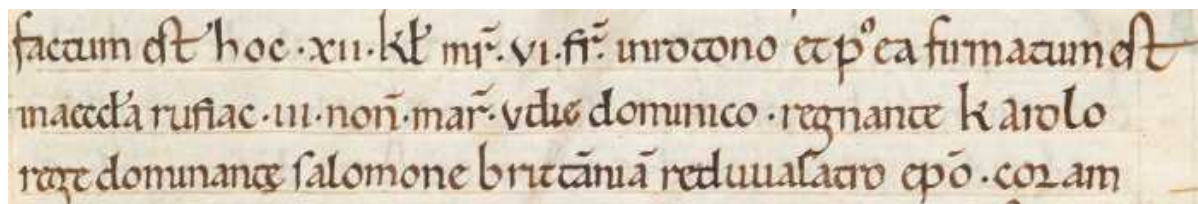 factum est hoc · xii · kł mr̄ · vi · fr̄ · inrotono et p⁰ ea firmatum est
inaeccła rufiac · iii · non̄ · mar̄ · v die dominico · regnante karolo
rege dominante salomone brittāniā reduuuasatro ep̄o · coram